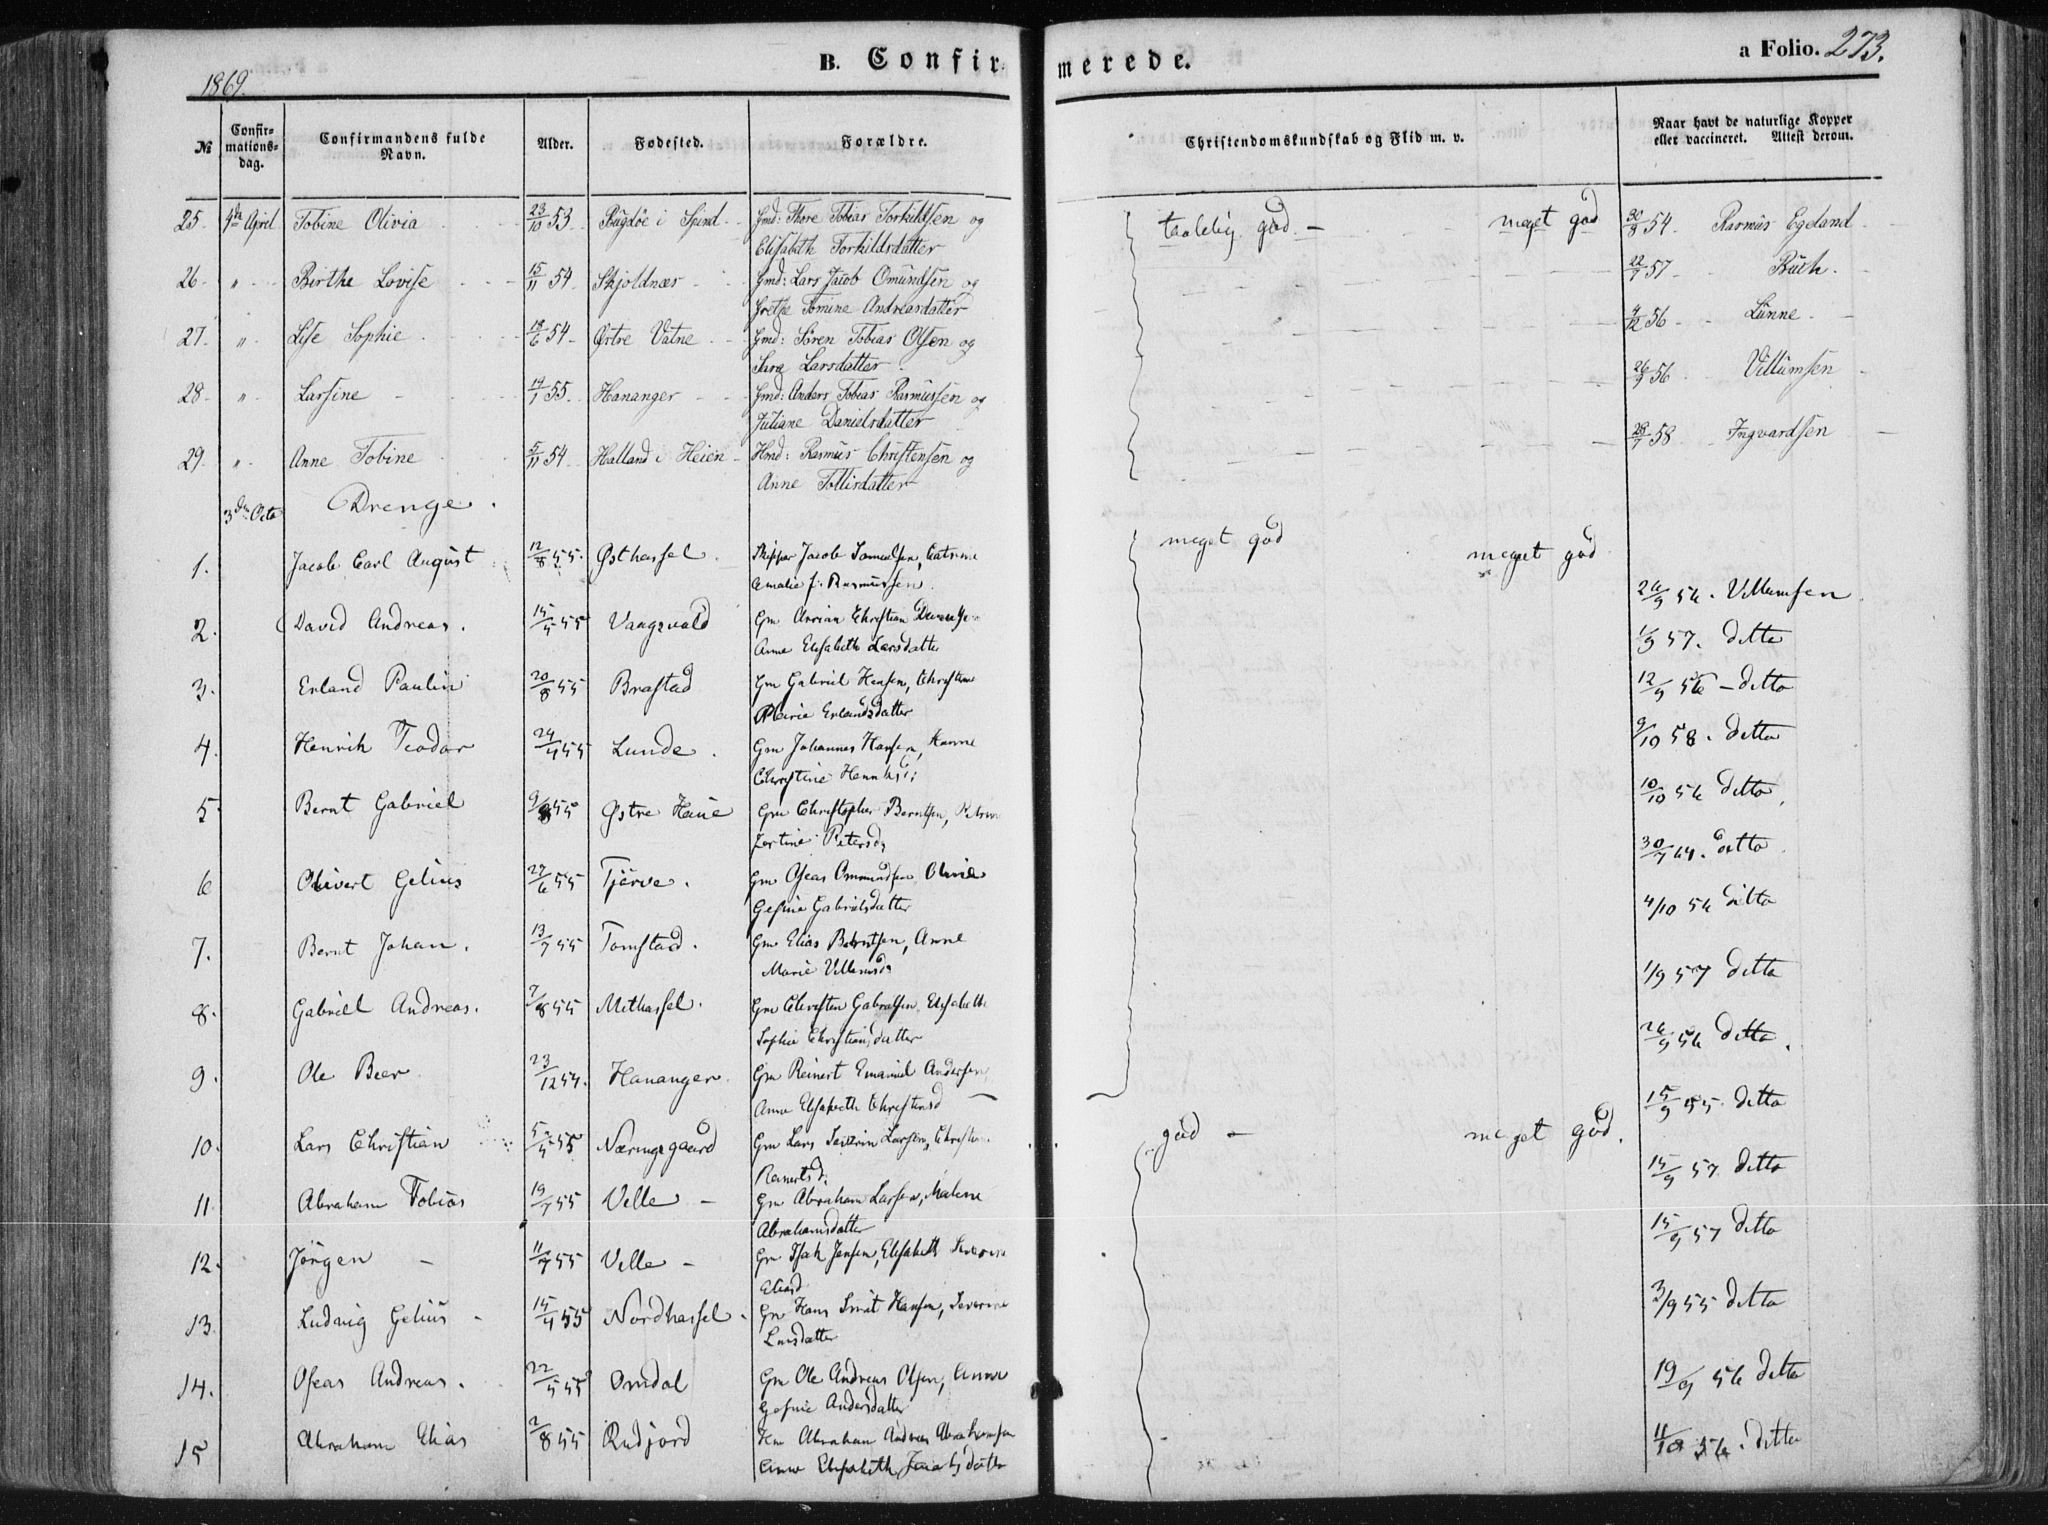 1869.
B. Confirmerede.
a Folio. 273.
№
Confirmationsdag.
Confirmandens fulde Navn.
Alder.
Fødested.
Forældre.
Christendomskundskab og Flid m. v.
Naar havt de naturlige Kopper eller vaccineret. Attest derom.
25. 4de April Tobine Olivia 23/10 53 Bugdøe i Spind Gmd: Thore Tobias Torkildsen og taalelig god. — meget god 30/8 54. Rasmus Egeland
Elisabeth Torkildsdatter
26 " Birthe Lovise 15/11 54 Skjoldnæs Gmd: Lars Jacob Omundsen og 22/7 57 Buch.
Grethe Tomine Andreasdatter
27. " Lise Sophie 18/6 54 Østre Vatne Gmd: Søren Tobias Olsen og 4/12 56 Lunne
Sara Larsdatter
28 " Larsine 14/1 55 Hananger Gmd: Anders Tobias Rasmussen og 26/9 56 Villumsen
Juliane Danielsdatter
29. " Anne Tobine 5/11 54 Halland i Heien Hmd: Rasmus Christensen og 28/7 58 Ingvardsen
Anne Tollisdatter
3die Octo Drenge.
1. Jacob Carl August 12/8 55. Østhassel. Skipper Jacob Samuelsen, Catrine meget god meget god 26/9 56. Villumsen
Amalie f. Rasmussen.
2. David Andreas. 15/4 55 Vangsvold Gm Christian 1/9 57. ditto
Anne Elisabeth Larsdatter
3. Erland Paulin 20/8 55 Brastad Gm Gabriel Hansen, Christine 12/9 56 - ditto
Marie Erlandsdatter
4. Henrik Teodor 24/4 55 Lunde. Gm Johannes Hansen, Hanne 9/10 58. ditto
Christine Henriksd:
5. Bernt Gabriel 9/8 55 Østre Haue Gm Christopher Berntsen, 10/10 56 ditto
Petersd
6 Olivert Gelius 24/6 55 Tjørve. Gm Oseas Ommundsen, Olivie 30/7 64. ditto
Gesine Gabrielsdatter
7. Bernt Johan. 13/7 55 Tomstad. Gm Elias Berntsen, Anne 4/10 56 ditto
Marie Villumsd
8. Gabriel Andreas. 7/8 55 Mithassel. Gm Christen Gabrielsen, Elisabeth 1/9 57 ditto
Sophie Christiansdatter
9. Ole Beer 23/12 54. Hananger. Gm Reinert Emanuel Andersen, 26/9 56 ditto.
Anne Elisabeth Christensd
10. Lars Christian 5/4 55 Næringsgaard Gm Lars Severin Larsen, god — meget god. 15/9 55. ditto
Reinertsd.
11. Abraham Tobias 19/7 55 Velle — Gm Abraham Larsen, Malene 15/9 57. ditto
Abrahamsdatter
12. Jörgen — 11/7 55 Velle — Gm Isak Jensen, Elisabeth Severine 15/9 57 ditto
Eliasd
13. Ludvig Gelius - 15/4 55 Nordhassel. Gm Hans Smit Hansen, Severine 3/9 55 ditto
Larsdatter
14. Oseas Andreas. 22/5 55 Omdal Gm Ole Andreas Olsen, Anne 19/9 56 ditto
Gesine Andersdatter
15 Abraham Elias 2/8 55 Rudjord Hm Abraham Andreas Abrahamsen 11/10 56. ditto
Anne Elisabeth Jacobsdatter